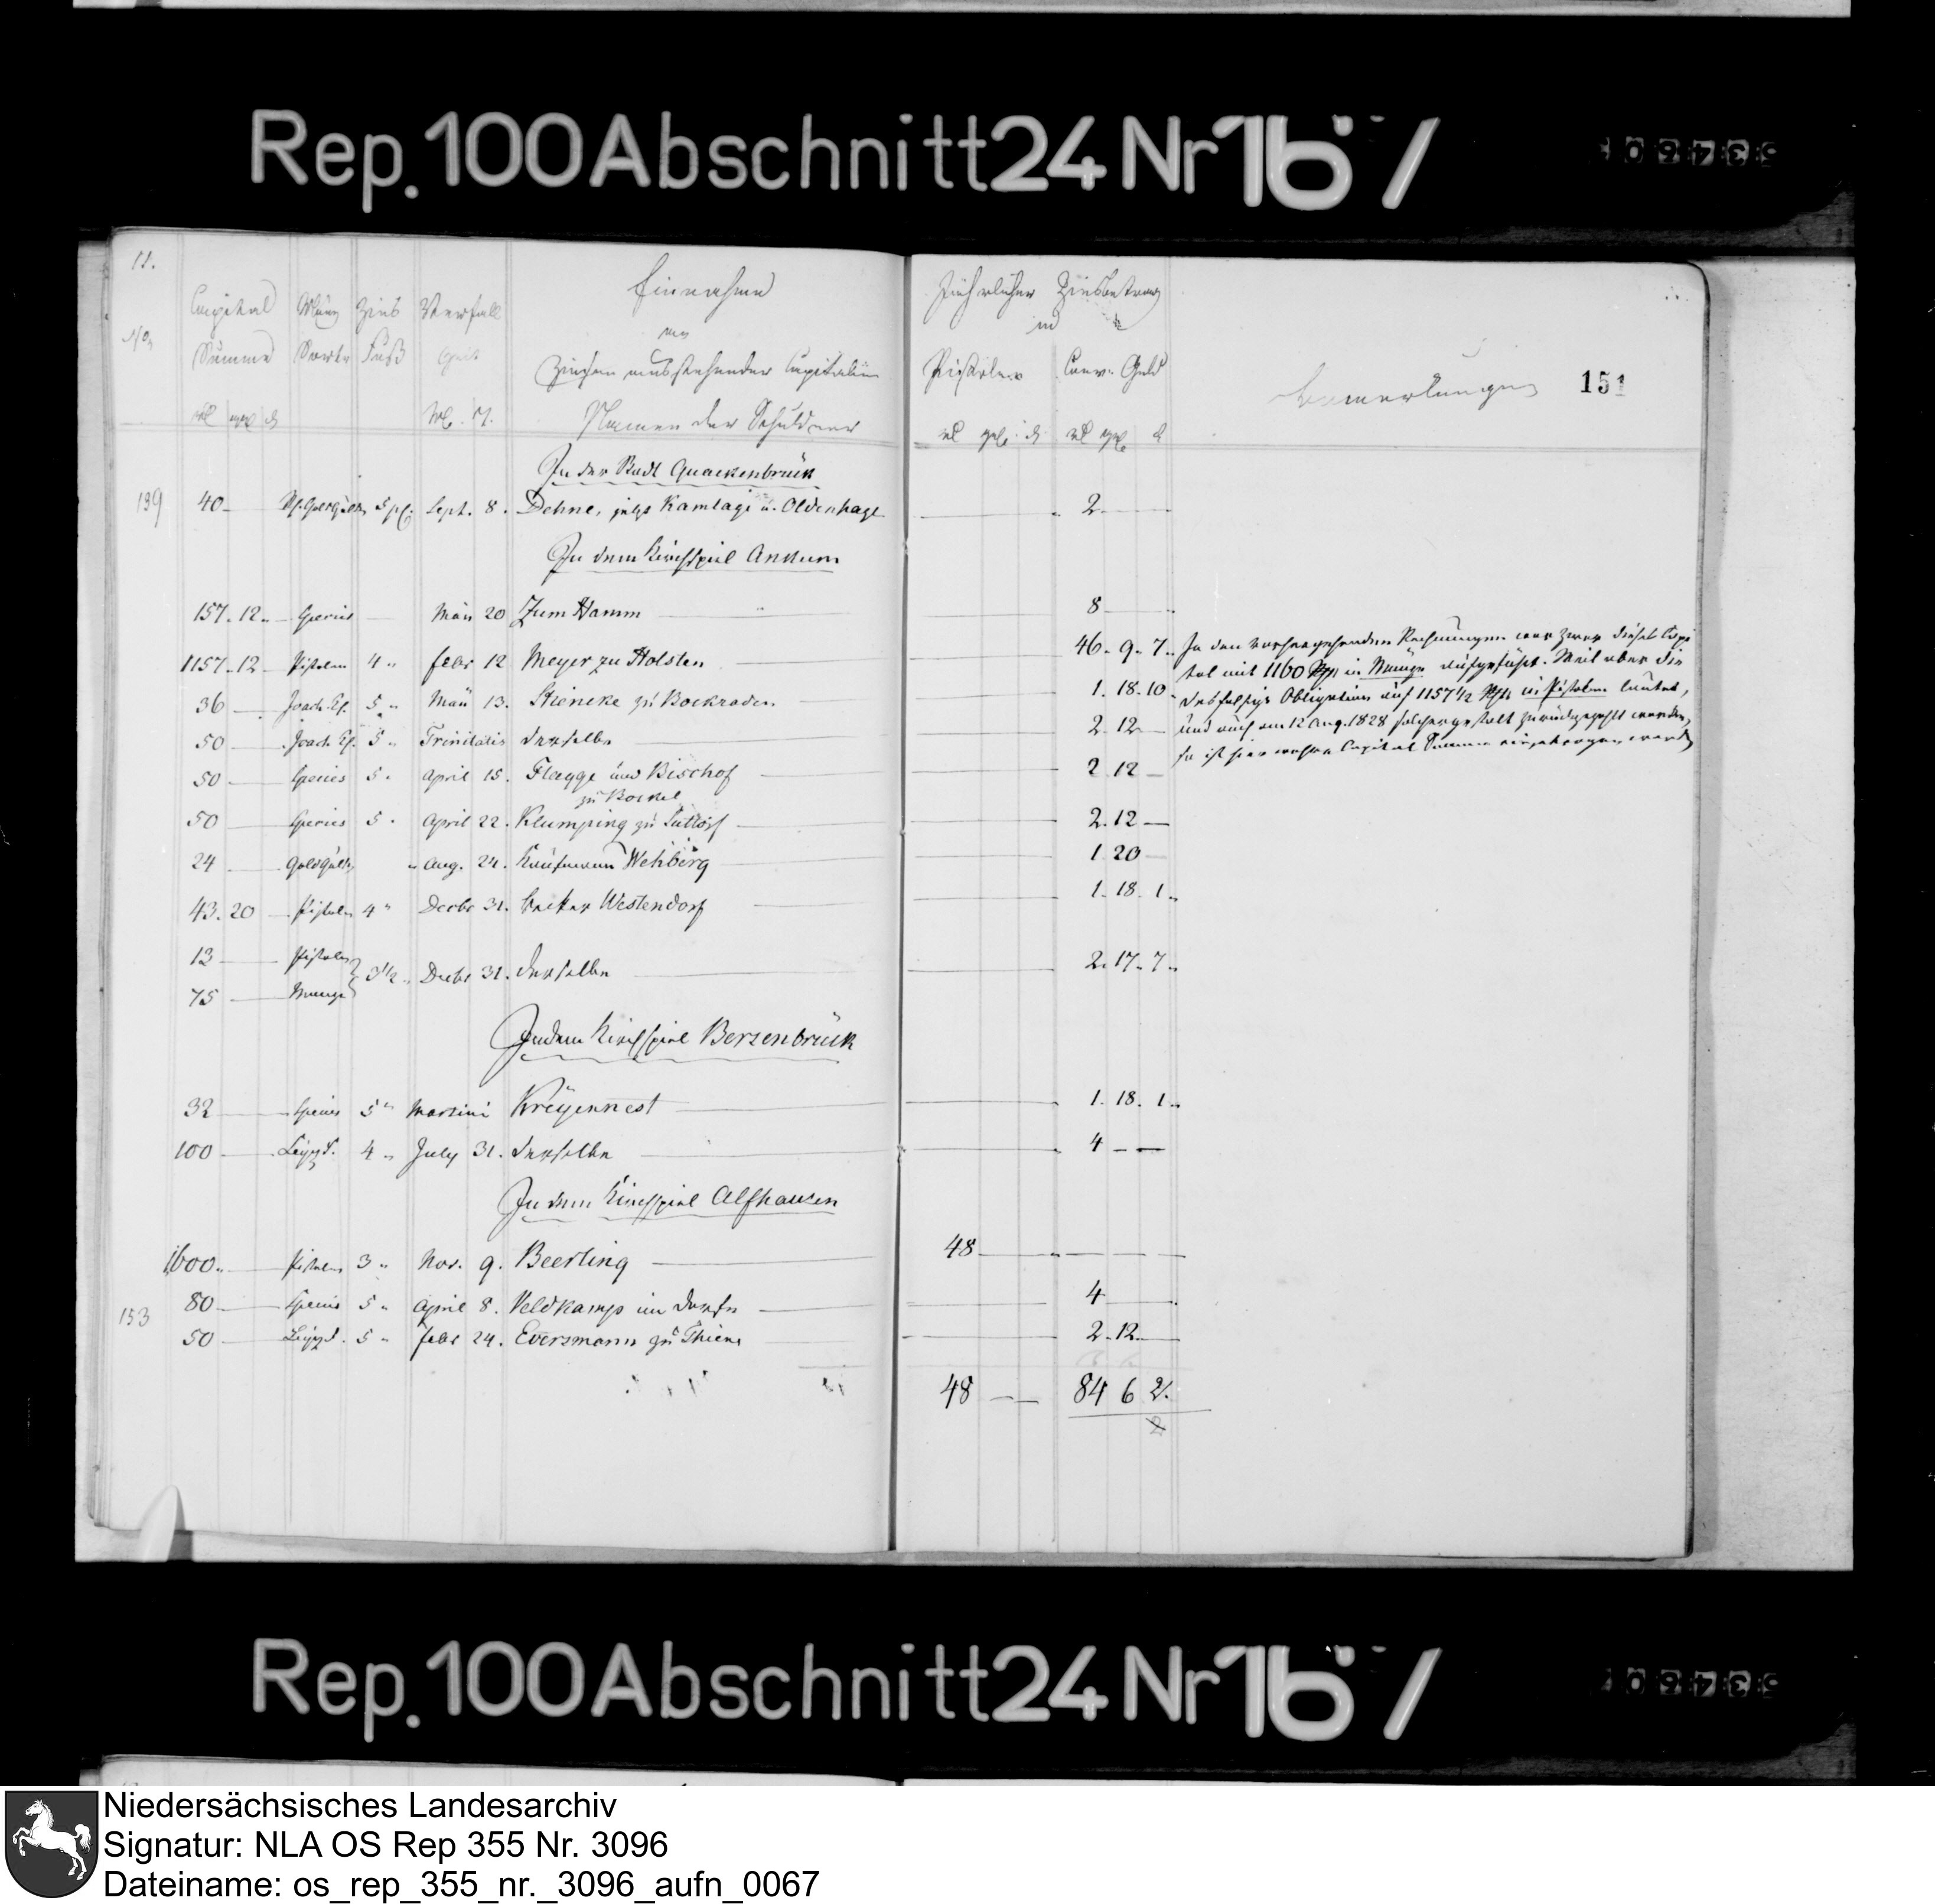 Rep. 100 Abschnitt 24 Nr 167
11.
Einnahme
Capital Münz Zins Verfall
an
No Summe Sorte Fuß Zeit
Zinsen ausstehender Capitalien
Namen der Schuldner
Jährlicher Zinsbetrag
in
Pistolen Conv. Geld
Bemerkungen 151
In der Stadt Quackenbrück
139 40 Sept. 8. Dehne, jetzt Kamlage u. Oldenhage 2
In dem Kirchspiel Ankum
157. 12 Species März 20 Zum Hamm 8
1157. 12 Pistolen 4 Febr 12 Meyer zu Holsten 46. 9. 7.
36 5 März 13. Steineke zu Bockraden 1. 18. 10
50 5 Trinitatis derselbe 2. 12
50 Species 5 April 15. Flagge und Bischof 2 12
zu Bockel
50 Species 5 April 22. Klumping zu Suttorf 2. 12
24 Goldgulden Aug. 24. Kaufmann Wehberg 1 20
43. 20 Pistolen 4 Decbr 31. Westendorf 1. 18. 1
13 Pistolen
3 1/2 Decbr 31. derselbe 2. 17. 7
75 Münze
In den vorhergehenden Rechnungen war zwar dieses Capi
tal mit 1160 in Münze aufgeführt. Weil aber die
desfalsige Obligation auf 1157 1/2 in Pistolen lautet,
und auch am 12 Aug. 1828 solchergestalt zurückgezahlt worden,
so ist hier Capital Summe eingetragen worden
In dem Kirchspiel Bersenbrück
32 Species 5 Martini Kreyennest 1. 18. 1
100 4 July 31. derselbe 4
In dem Kirchspiel Alfhausen
1600 Pistolen 3 Nov. 9. Beerling 48
80 Species 5 April 8. Veldkamp im Dorfe 4
153 50 5 Febr 24. Eversmann zu Thiene 2. 12
48 84 6 2
Rep. 100 Abschnitt 24 Nr 167
Niedersächsisches Landesarchiv
Signatur: NLA OS Rep 355 Nr. 3096
Dateiname: os_rep_355_nr._3096_aufn_0067